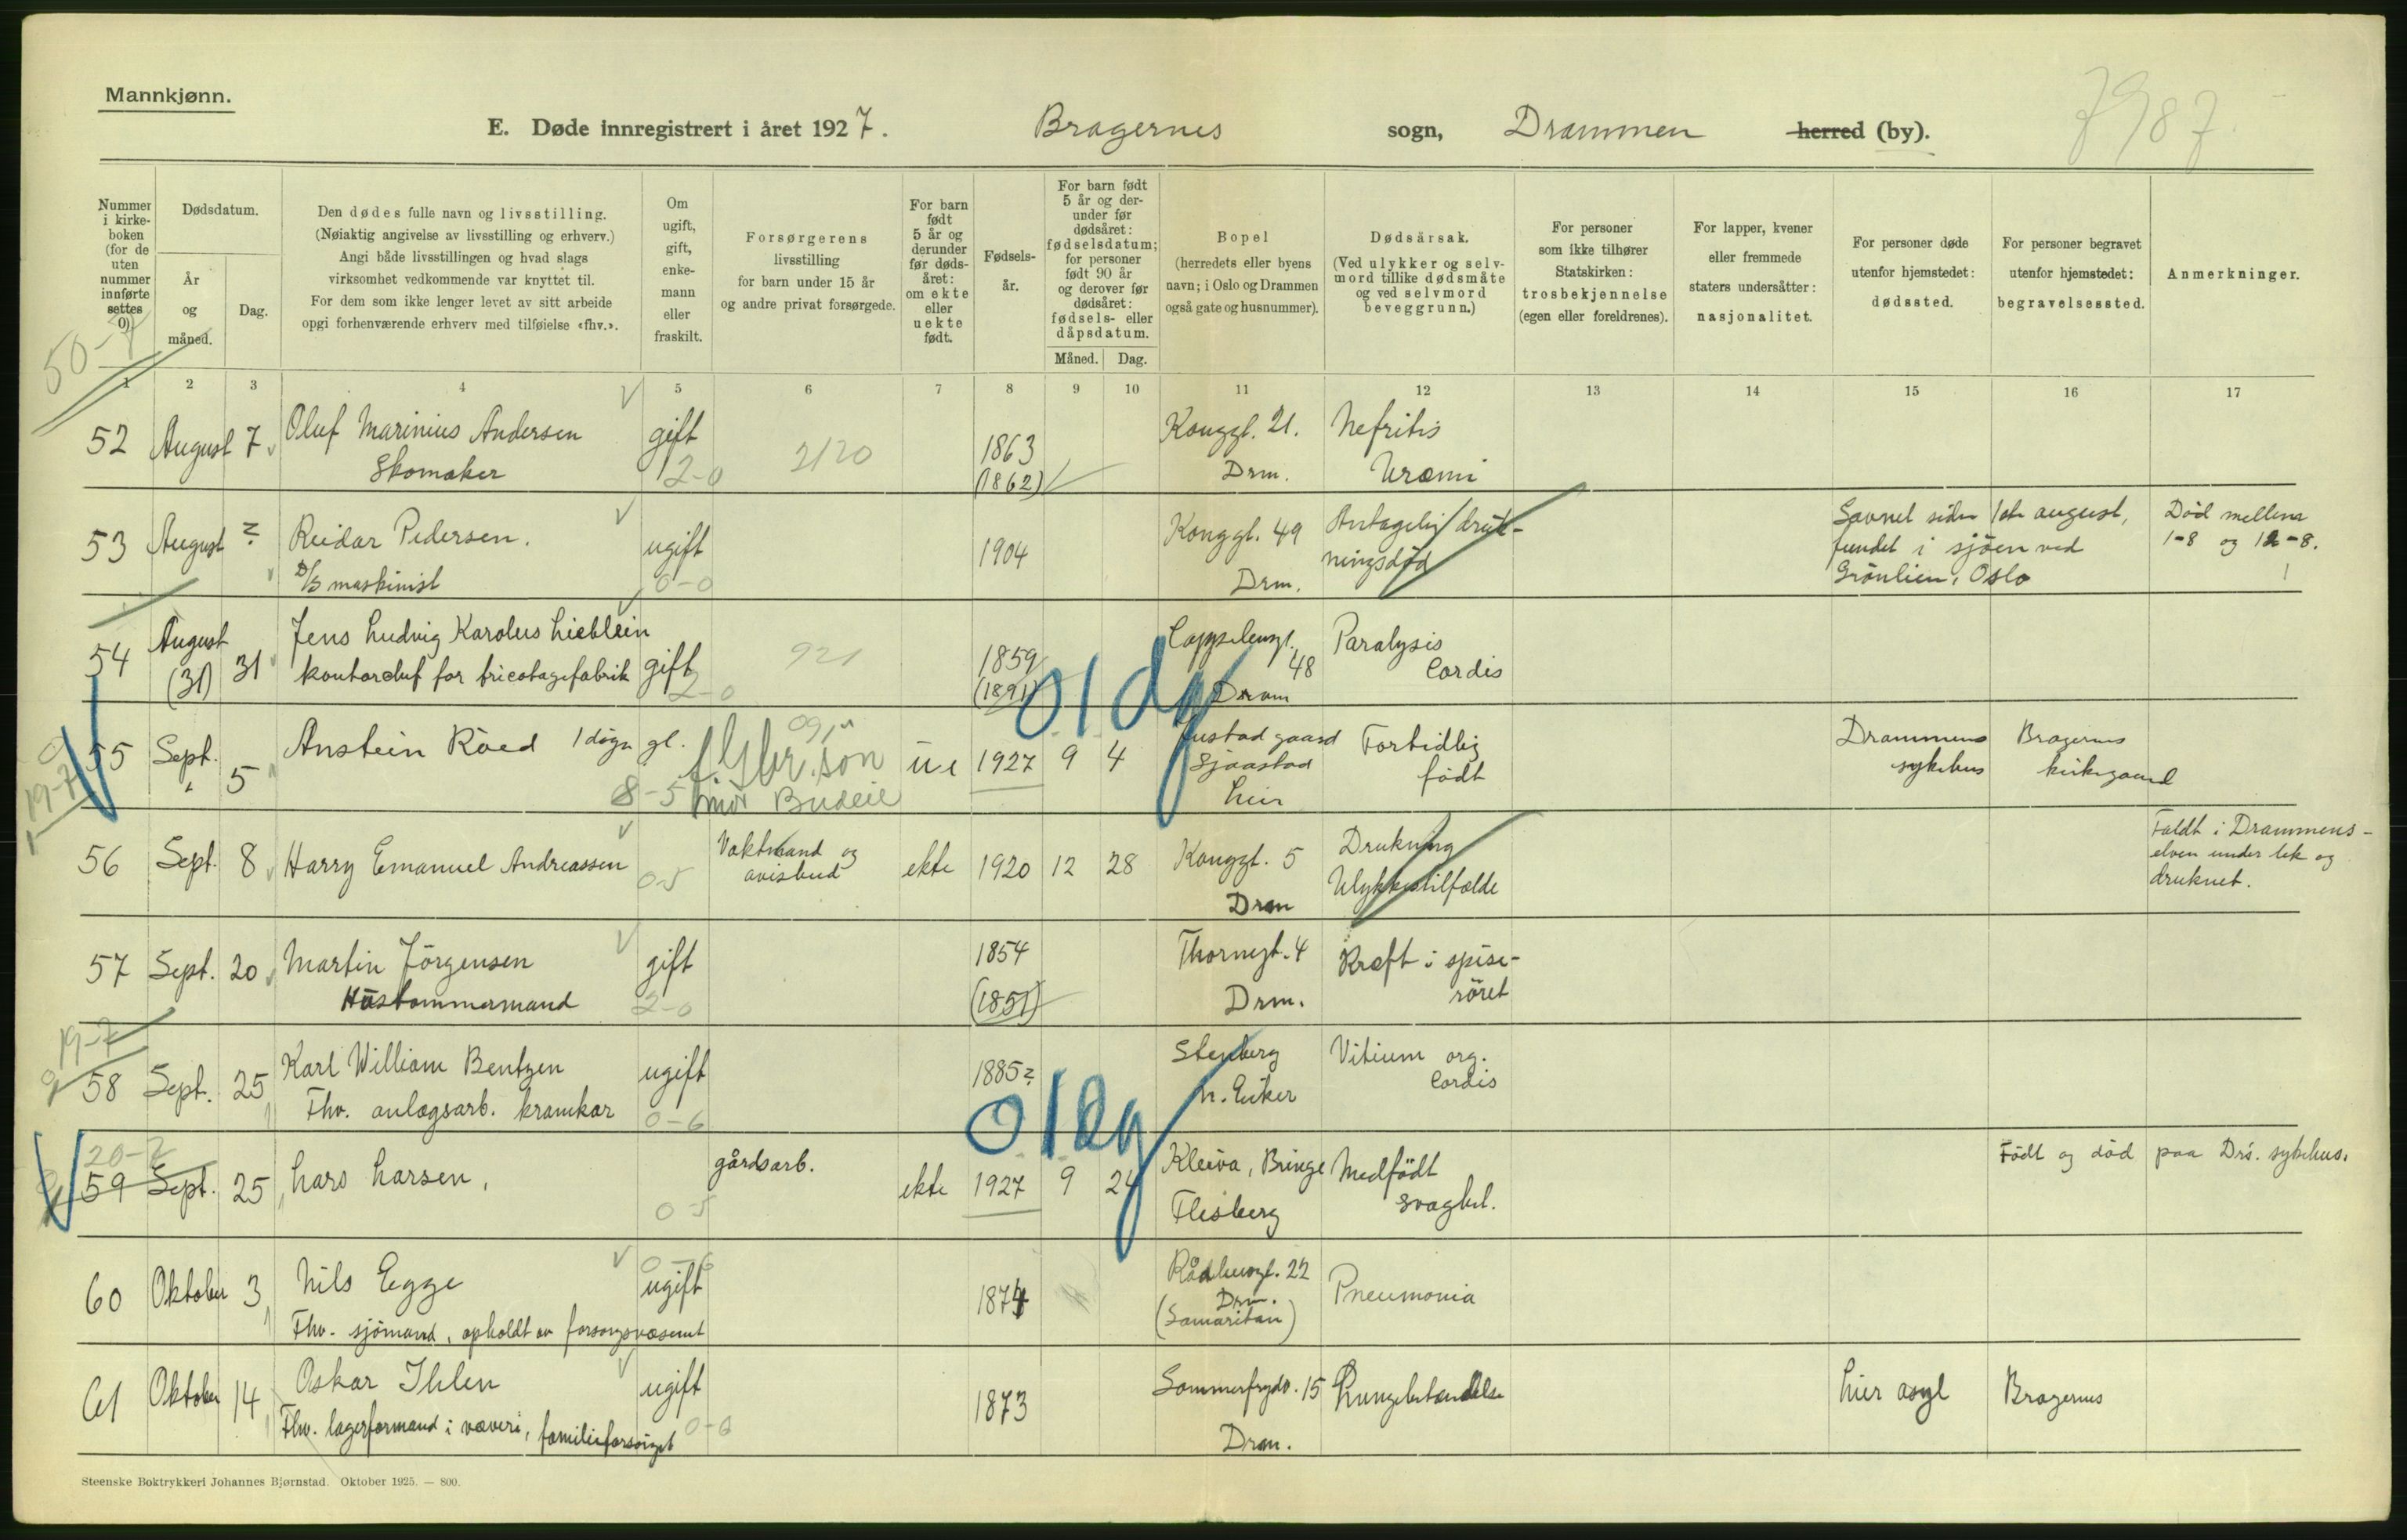 Mannkjønn.
E. Døde innregistrert i året 1927. Bragernes sogn, Drammen herred (by).
Nummer i kirke-boken (for de uten nummer innførte settes 0)
Dødsdatum.
År og måned.
Dag.
Den dødes fulle navn og livsstilling.
(Nøiaktig angivelse av livsstilling og erhverv.)
Angi både livsstillingen og hvad slags
virksomhet vedkommende var knyttet til.
For dem som ikke lenger levet av sitt arbeide
opgi forhenværende erhverv med tilføielse «fhv.».
Om ugift, gift, enke-mann eller fraskilt.
Forsørgerens
livsstilling
for barn under 15 år
og andre privat forsørgede.
For barn født 5 år og derunder før døds-året: om ekte eller uekte født.
Fødsels-år.
For barn født 5 år og der-under før dødsåret: fødselsdatum; for personer født 90 år og derover før dødsåret: fødsels- eller dåpsdatum.
Måned. Dag.
Bopel
(herredets eller byens
navn; i Oslo og Drammen
også gate og husnummer).
Dødsårsak.
(Ved ulykker og selv-
mord tillike dødsmåte
og ved selvmord
beveggrunn.)
For personer
som ikke tilhører
Statskirken:
trosbekjennelse
(egen eller foreldrenes).
For lapper, kvener
eller fremmede
staters undersåtter:
nasjonalitet.
For personer døde
utenfor hjemstedet:
dødssted.
For personer begravet
utenfor hjemstedet:
begravelsessted.
Anmerkninger.
50-7
1 2 3 4 5 6 7 8 9 10 11 12 13 14 15 16 17
52 August 7 Oluf Marinius Andersen gift 2120 1863 Konggt. 21. Nefritis
Skomaker 2-0 (1862) Drm. Uræmi
53 August ? Reidar Pedersen. ugift 1904 Konggt. 49 Antagelig druk- Savnet siden 1ste august, Død mellem
D/S maskinist 0-0 Drm. ningsdød fundet i sjøen ved 1-8 og 12-8.
Grønlien, Oslo
54 August 31 Jens Ludvig Karolus Lieblein gift 921 1859 Cappelensgt. 48 Paralysis
(31) kontorchef for tricotagefabrik 2-0 (1891) Dram Cordis
01 dg
55 Sept. 5 Anstein Röed 1 døgn gl. u e 1927 9 4 gaard Fortidlig Drammens Bragernes
8-5 mor Budeie Sjaastad født sykehus kirkegaard
Lier
19-7
56 Sept. 8 Harry Emanuel Andreassen 0-5 Vaktmand og ekte 1920 12 28 Konggt. 5 Drukning Faldt i Drammens-
avisbud Drm Ulykkestilfælde elven under lek og
druknet.
57 Sept. 20 Martin Jörgensen gift 1854 Thornegt. 4 Kræft i spise-
Hustømmermand 2-0 (1851) Drm. röret
19-7
58 Sept. 25 Karl William Bentzen ugift 1885? Stenberg Vitium org.
Fhv. anlægsarb. kramkar 0-6 n. Eiker Cordis
01 dg
20-7
59 Sept. 25 Lars Larsen, gårdsarb. ekte 1927 9 24 Kleiva, Bringe Medfödt Födt og död paa Drs. sykehus.
0-5 Flesberg svaghet.
60 Oktober 3 Nils Egge 0-6 ugift 1874 Rådhusgt. 22 Pneumonia
Fhv. sjömand, opholdt av forsorgsvæsenet Drm.
(Samaritan)
61 Oktober 14 Oskar Ihlen ugift 1873 Sommerfrydv. 15 Lungebetændelse Lier asyl Bragernes
Fhv. lagerformand i væveri, familieforsörget 0-6 Drm.
Steenske Boktrykkeri Johannes Bjørnstad. Oktober 1925. — 800.